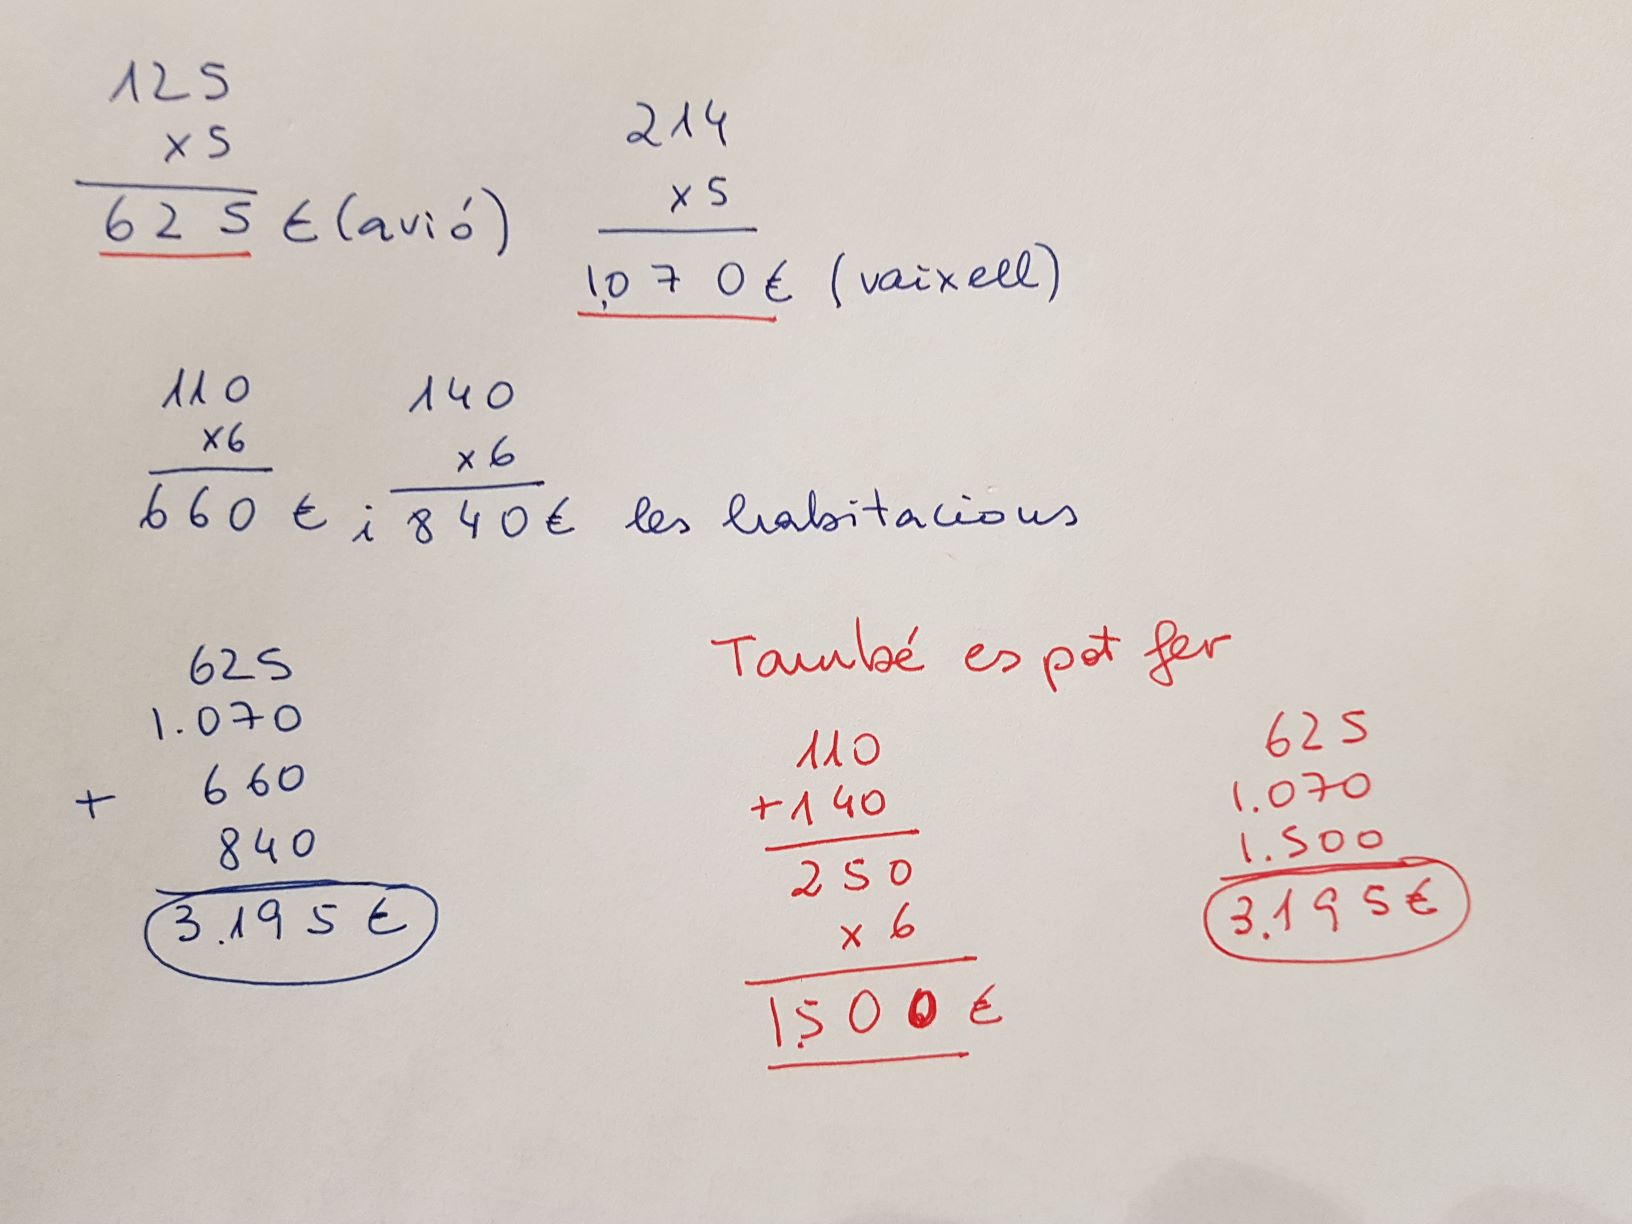 125
x5
625 € (avió)
214
x5
1.070 € (vaixell)
110
x6
660 € i
140
x6
840 € les habitacions
625
1.070
+ 660
840
3.195 €
També es pot fer
110
+140
250
x 6
1.500 €
625
1.070
1.500
3.195 €